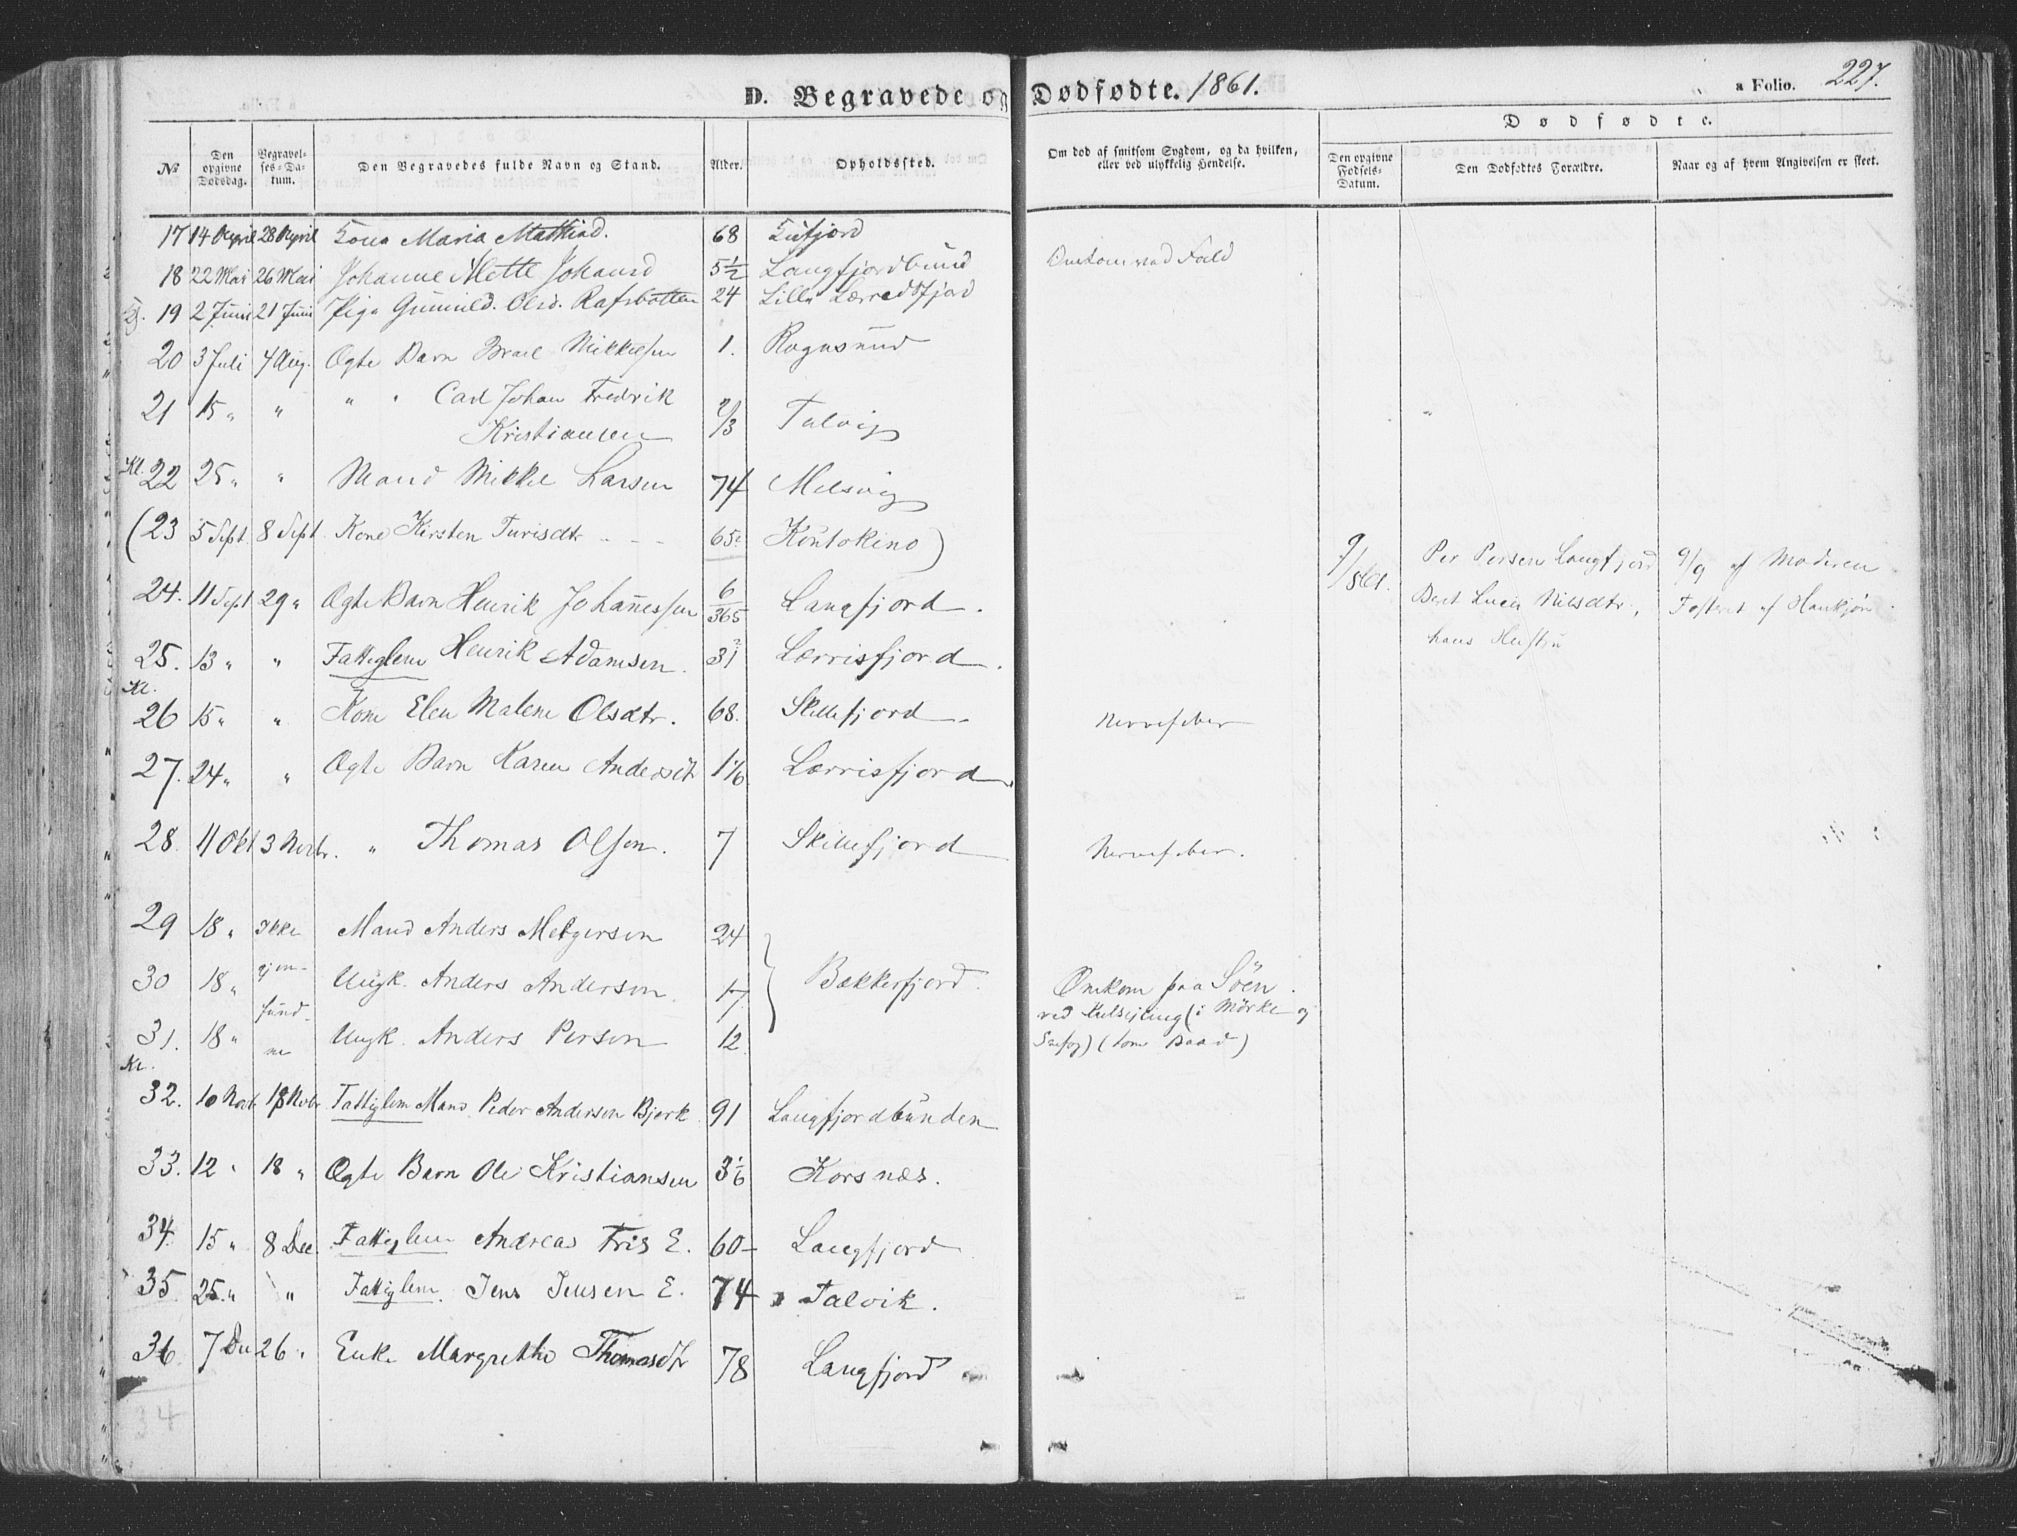 D. Begravede og Dødfødte. 1861.
a Folio. 227.
Dødfødte.
No Den opgivne Dødsdag. Begravelses-Datum. Den Begravedes fulde Navn og Stand. Alder. Opholdssted. Om død af smitsom Sygdom, og da hvilken, eller ved ulykkelig Hendelse. Den opgivne Fødsels-Datum. Den Dødfødtes Forældre. Naar og af hvem Angivelsen er skeet.
17 14 April 28 April Kona Maria Mathiad. 68
18 22 Mai 26 Mai Johanne Mette Johansd 5 1/2 Langfjordbund Omkom ved Fald
19 2 Juni 21 Juni Pige Gunnild. Olsd. Rafsbotten 24 Lille Lærredsfjord
20 3 Juli 4 Aug. Ogte Barn Israel Mikkelsen 1. Rognsund
21 15 " " " " Carl Johan Fredrik
Kristiansen 2/3 Talvig
Kl. 22 25 " " Mand Mikkel Larsen 74 Melsvig
(23 5 Sept 8 Sept Kone Kirsten Turisdtr - - - 65 Koutokino)
9/ 861. Per Persen Langfjord 9/9 af Moderen
24. 11 Sept 29 " Ogte Barn Henrik Johannessen 6/365 Langfjord.
Beret Lucia Nilsdtr, Fosteret af Hankjøn.
hans Hustru
25. 13 " " Fattiglem Henrik Adamsen. 31 Lerrisfjord.
Kl.
26 15 " " Kone Elen Malene Olsdtr. 68. Skillefjord. Nervefeber
27. 24 " " Ogte Barn Karen Andersdtr 1 1/6 Lerrisfjord.
28. 11 Okt 3 Novbr. " Thomas Olsen. 7 Skillefjord Nervefeber.
29 18 " Ikke Mand Anders Melgersen 24
30 18 " gjen- Ungk. Anders Andersen. 17. Bækkerfjord. Omkom paa Søen.
fund- ved Kulseiling (i Mörke og
31. 18 " ne Ungk. Anders Persen 12 Snefog) (tom Baad)
Kl.
32. 10 Novb 18 Novbr Fattiglem Mand Peder Andersen Bjørk 91 Langfjordbunden
33. 12 " 18 " Ogte Barn Ole Kristiansen 3 1/6 Korsnæs.
34. 15 " 8 Dec. Fattiglem Andreas Friis E. 60 Langfjord
35 25. " " Fattiglem Jens Jensen E. 74 Talvik.
36. 7 Dec 26 " Enke Margrethe Thomasdtr 78 Langfjord
34